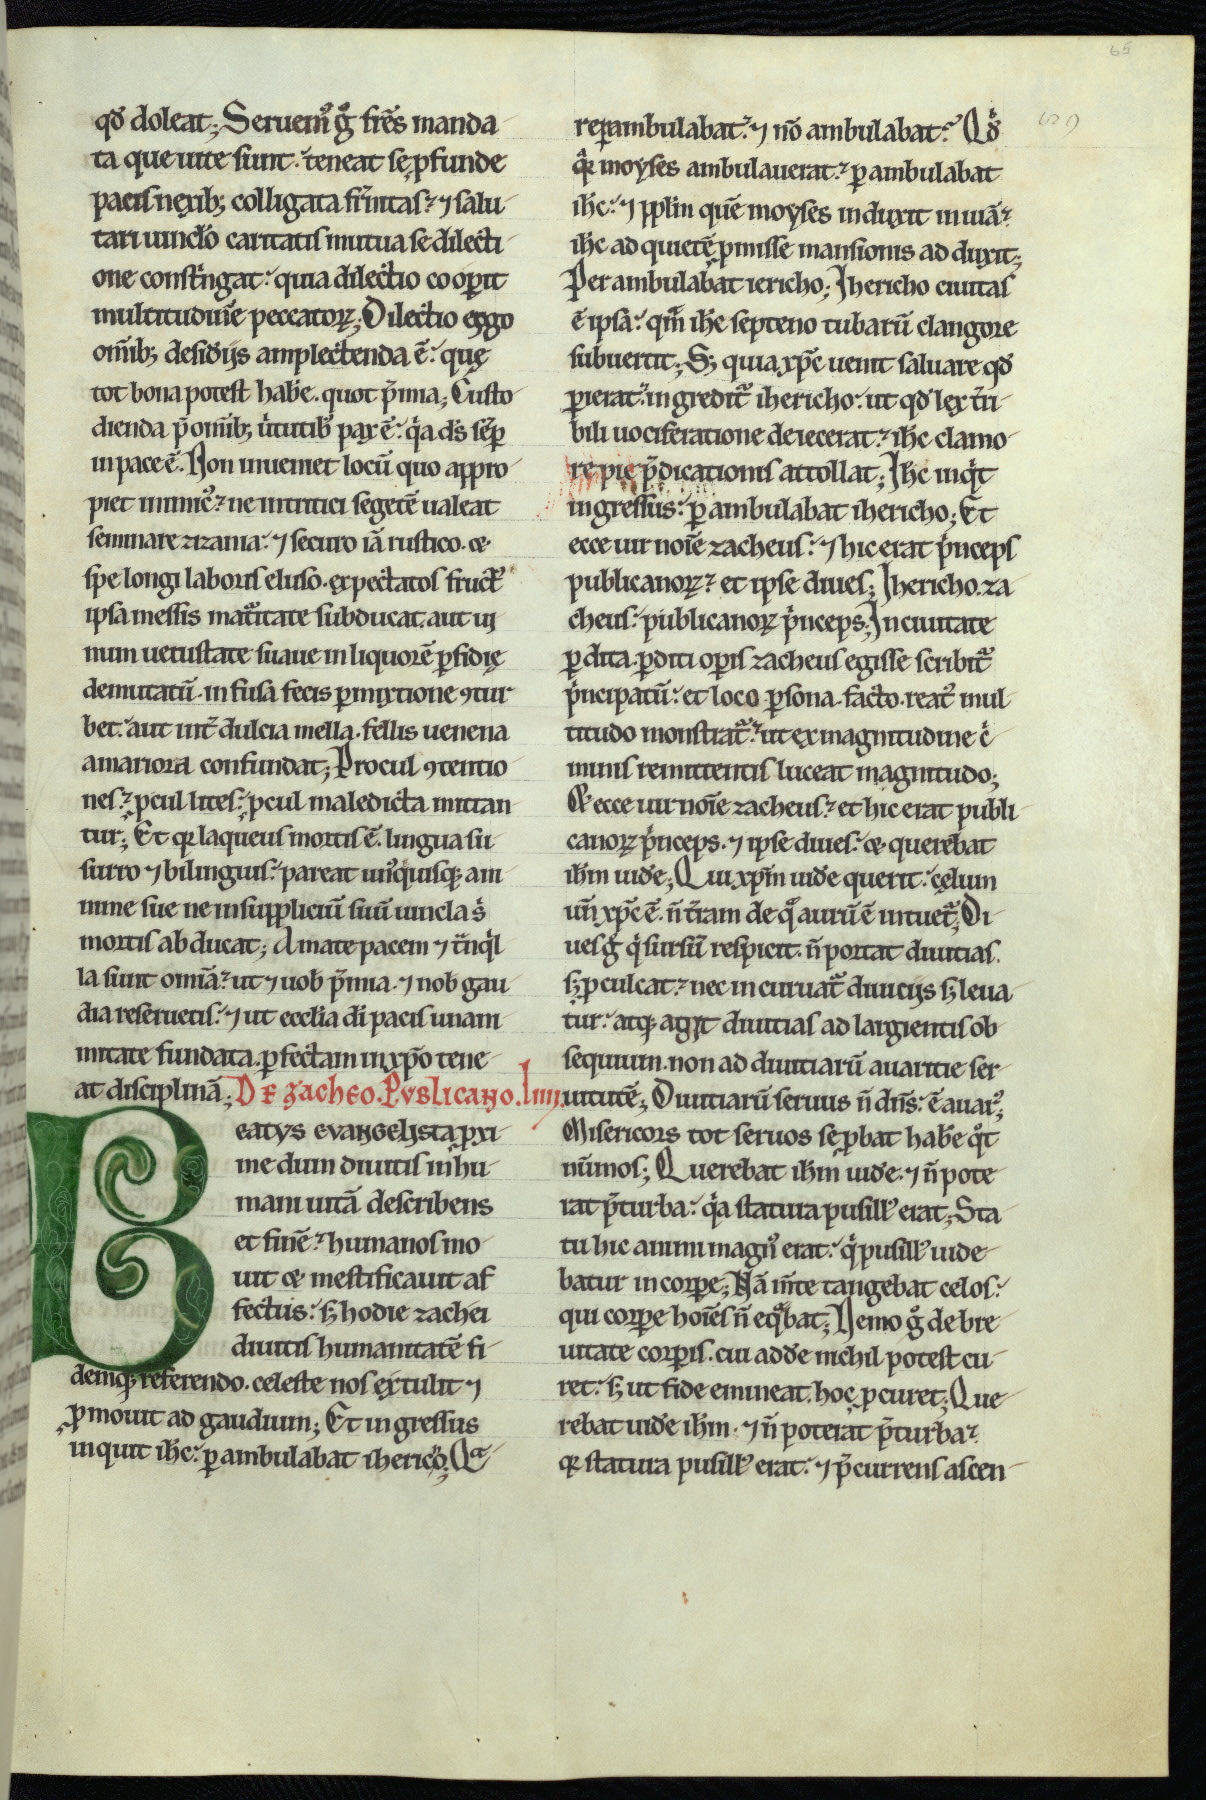 65
qđ doleat; Seruem᷒ g̊ fr̄es manda
ta que uite sunt. teneat se ꝓfunde
pacis nexib; colligata fr̄nitas. ⁊ salu
tari uinclo caritatis mutua se dilecti
one constringat. quia dilectio cooꝑit
multitudinē peccatoꝝ; Dilectio ergo
om̄ib; desiđijs amplectenda ē. quę
tot bona potest hab̄e. quot p̄mia; Custo
dienda p̄ om̄ib; uirtutib᷒ pax ē. qͥa đs sēꝑ
in pace ē. Non inueniet locū quo appro
piet inimic᷒. ne in tritici segetē ualeat
seminare zizania. ⁊ securo iā rustico. &
spe longi laboris eluso. expectatos fruct᷒
ipsa messis mat᷑itate subducat. aut ui
num uetustate suaue in liquorē ꝑfidię
demutatū. infusa fecis ꝑmixtione ꝯtur
bet. aut int̄ dulcia mella. fellis uenena
amariora confundat; Procul ꝯtentio
nes. ꝓcul lites. ꝓcul maledicta mittan
tur; Et qꝛ laqueus mortis ē. lingua su
surro ⁊ bilinguis. pareat un᷒quisq; ani
mine sue ne in suppliciū suū uincla s̄
mortis abducat; Amate pacem ⁊ t̄nqͥl
la sunt omīa. ut ⁊ uob p̄mia. ⁊ nob gau
dia reseruetis. ⁊ ut ecclia dī pacis unani
mitate fundata. ꝑfectam in xp̄o tene
at disciplinā; De zacheo. Publicano. liiij.
Beatus evangelista ꝓxi
me dum diuitis inhu
mani uitā describens
et finē. humanos mo
uit & mestificauit af
fectus. s; hodie zachei
diuitis humanitatē fi
demq; referendo. celeste nos extulit ⁊
ꝓmouit ad gaudium; Et ingressus
inquit ih̄c. ꝑambulabat iherico; Qͣ
re ꝑambulabat. ⁊ nō ambulabat. Qđ
qꝛ moyses ambulauerat. ꝑambulabat
ih̄c. ⁊ pplm̄ quē moyses induxit in uiā.
ih̄c ad quietē ꝓmisse mansionis adduxit;
Perambulabat iericho; Ihericho ciuitas
ē ipsa. qm̄ ih̄c septeno tubarū clangore
subuertit; S; quia xp̄c uenit saluare qđ
ꝑierat. ingredit᷑ ihericho. ut qđ lex t̄ri
bili uociferatione deiecerat. ih̄c clamo
re pie p̄dicationis attollat; Ih̄c inqͥt
ingressus. ꝑambulabat ihericho; Et
ecce uir noīe zacheus. ⁊ hic erat pͥnceps
publicanoꝝ. et ipse diues; Ihericho. za
cheus. publicanoꝝ pͥnceps; In ciuitate
ꝑdita. ꝑditi oꝑis zacheus egisse scribit᷑
pͥncipatū. et loco ꝑsona. facto. reat᷒ mul
titudo monstrat᷑. ut ex magnitudine cͥ
minis remittentis luceat magnitudo;
& ecce uir noīe zacheus. et hic erat publi
canoꝝ pͥnceps. ⁊ ipse diues. & querebat
ih̄m uiđe; Qui xp̄m uiđe querit. cęlum
uñ xp̄c ē. ñ t̄ram de qͣ aurū ē intuet᷑; Di
ues g̊ qͥ sursū respicit. ñ portat diuitias.
s; ꝓculcat. nec incuruat᷑ diuicijs s; leua
tur. atq; agit diuitias ad largientis ob
sequium. non ad diuitiarū auaritie ser
uitutē; Diuitiarū seruus ñ dn̄s. ē auar᷒;
Misericors tot seruos se ꝓbat hab̄e qͦt
nūmos; Querebat ih̄m uiđe. ⁊ ñ pote
rat p̄ turba. qͥa statura pusill᷒ erat; Sta
tu hic animi magn᷒ erat. qͥ pusill᷒ uide
batur in corꝑe; Nā m̄te tangebat celos.
qui corꝑe hoīes ñ eqͣbat; Nemo g̊ de bre
uitate corꝑis. cui adđe nichil potest cu
ret. s; ut fide emineat. hoc ꝓcuret; Que
rebat uiđe ih̄m. ⁊ ñ poterat p̄ turba.
qꝛ statura pusill᷒ erat. ⁊ p̄currens ascen